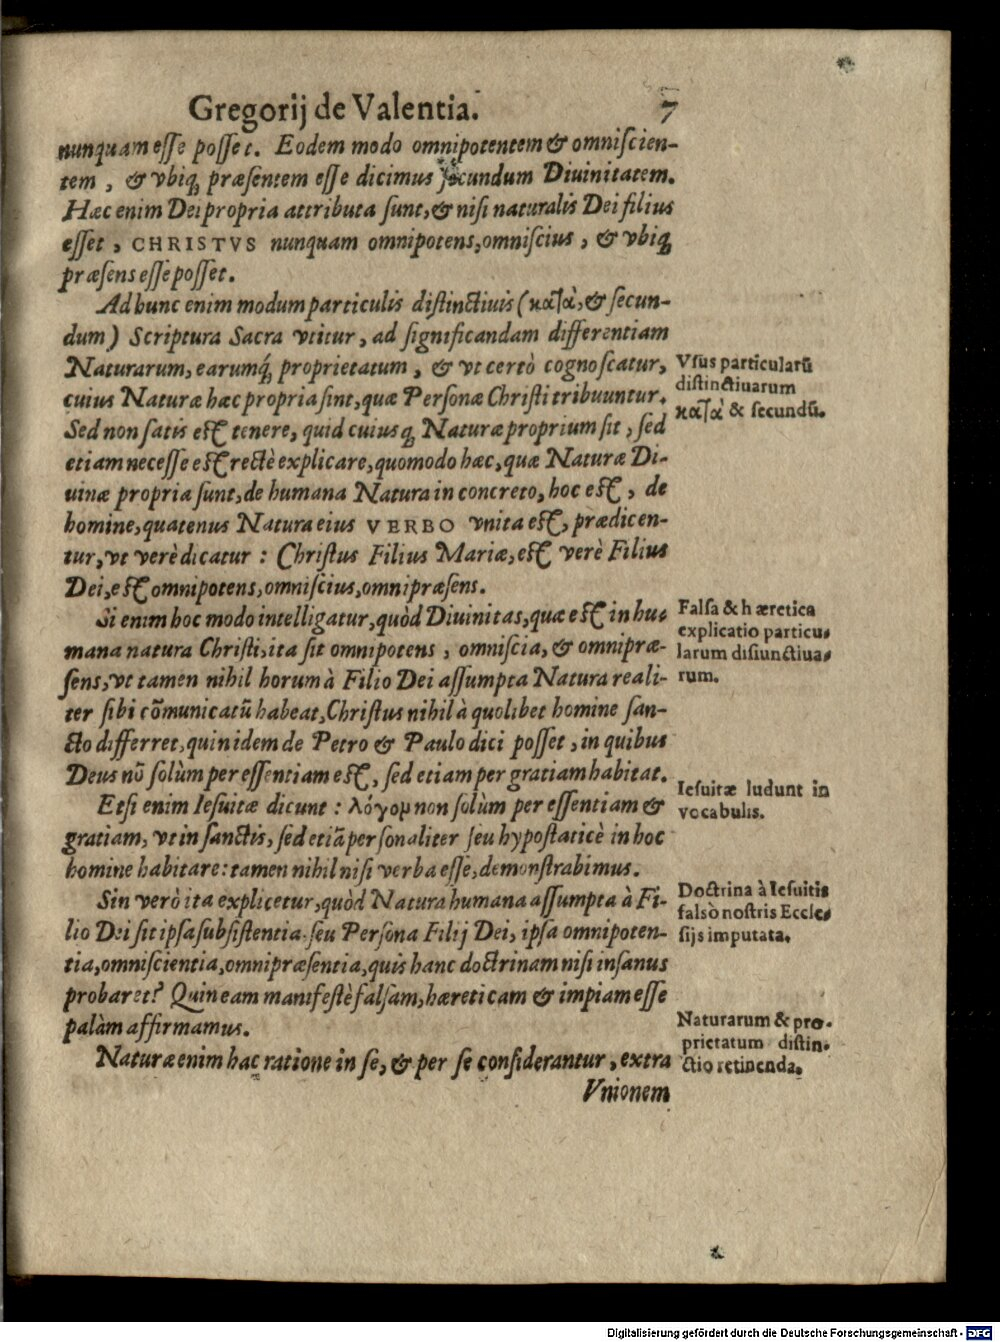 Gregorij de Valentia. 7
nunquam eſſe poſſet. Eodem modo omnipotentem & omniſcien-
tem, & vbiq; præſentem eſſe dicimus ſecundum Diuinitatem.
Hæc enim Dei propria attributa ſunt, & niſi naturalis Dei filius
eſſet, CHRISTVS nunquam omnipotens, omniſcius, & vbiq;
præſens eſſe poſſet.
Ad hunc enim modum particulis diſtinctiuis (κατὰ, & ſecun-
dum) Scriptura Sacra vtitur, ad ſignificandam differentiam
Naturarum, earumq́; proprietatum, & vt certò cognoſcatur,
cuius Naturæ hæc propria ſint, quæ Perſonæ Chriſti tribuuntur.
Vſus particularũ
diſtinctiuarum
κατὰ & ſecundũ.
Sed non ſatis eſt tenere, quid cuiusq; Naturæ proprium ſit, ſed
etiam neceſſe eſt rectè explicare, quomodo hæc, quæ Naturæ Di-
uinæ propria ſunt, de humana Natura in concreto, hoc eſt, de
homine, quatenus Natura eius VERBO vnita eſt, prædicen-
tur, vt verè dicatur: Chriſtus Filius Mariæ, eſt verè Filius
Dei, eſt omnipotens, omniſcius, omnipræſens.
Si enim hoc modo intelligatur, quòd Diuinitas, quæ eſt in hu-
mana natura Chriſti, ita ſit omnipotens, omniſcia, & omnipræ-
ſens, vt tamen nihil horum à Filio Dei aſſumpta Natura reali-
ter ſibi cõmunicatũ habeat, Chriſtus nihil à quolibet homine ſan-
cto differret, quin idem de Petro & Paulo dici poſſet, in quibus
Deus nõ ſolùm per eſſentiam eſt, ſed etiam per gratiam habitat.
Falſa & hæretica
explicatio particu-
larum diſiunctiua-
rum.
Etſi enim Ieſuitæ dicunt: λόγον non ſolùm per eſſentiam &
gratiam, vt in ſanctis, ſed etiã perſonaliter ſeu hypoſtaticè in hoc
homine habitare: tamen nihil niſi verba eſſe, demonſtrabimus.
Ieſuitæ ludunt in
vocabulis.
Sin verò ita explicetur, quòd Natura humana aſſumpta à Fi-
lio Dei ſit ipſa ſubſiſtentia ſeu Perſona Filij Dei, ipſa omnipoten-
tia, omniſcientia, omnipræſentia, quis hanc doctrinam niſi inſanus
probaret? Quin eam manifeſtè falſam, hæreticam & impiam eſſe
palàm affirmamus.
Doctrina à Ieſuitis
falsò noſtris Eccle-
ſijs imputata.
Naturæ enim hac ratione in ſe, & per ſe conſiderantur, extra
Naturarum & pro-
prietatum diſtin-
ctio retinenda.
Vnionem
Digitalisierung gefördert durch die Deutsche Forschungsgemeinschaft - DFG